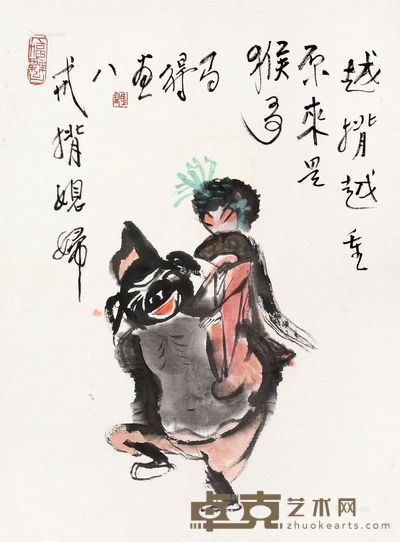 越揹越重
原來是
猴哥
马得画
八
戒揹媳婦
卓克艺术网
zhuokearts.com